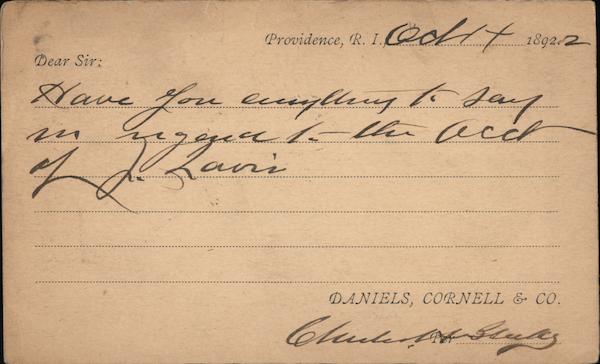 Providence, R. I. Oct 14 1892.2
Dear Sir:
Have you anything to say
in regard to the Acct
of J. Lavin
DANIELS, CORNELL & CO.
Per